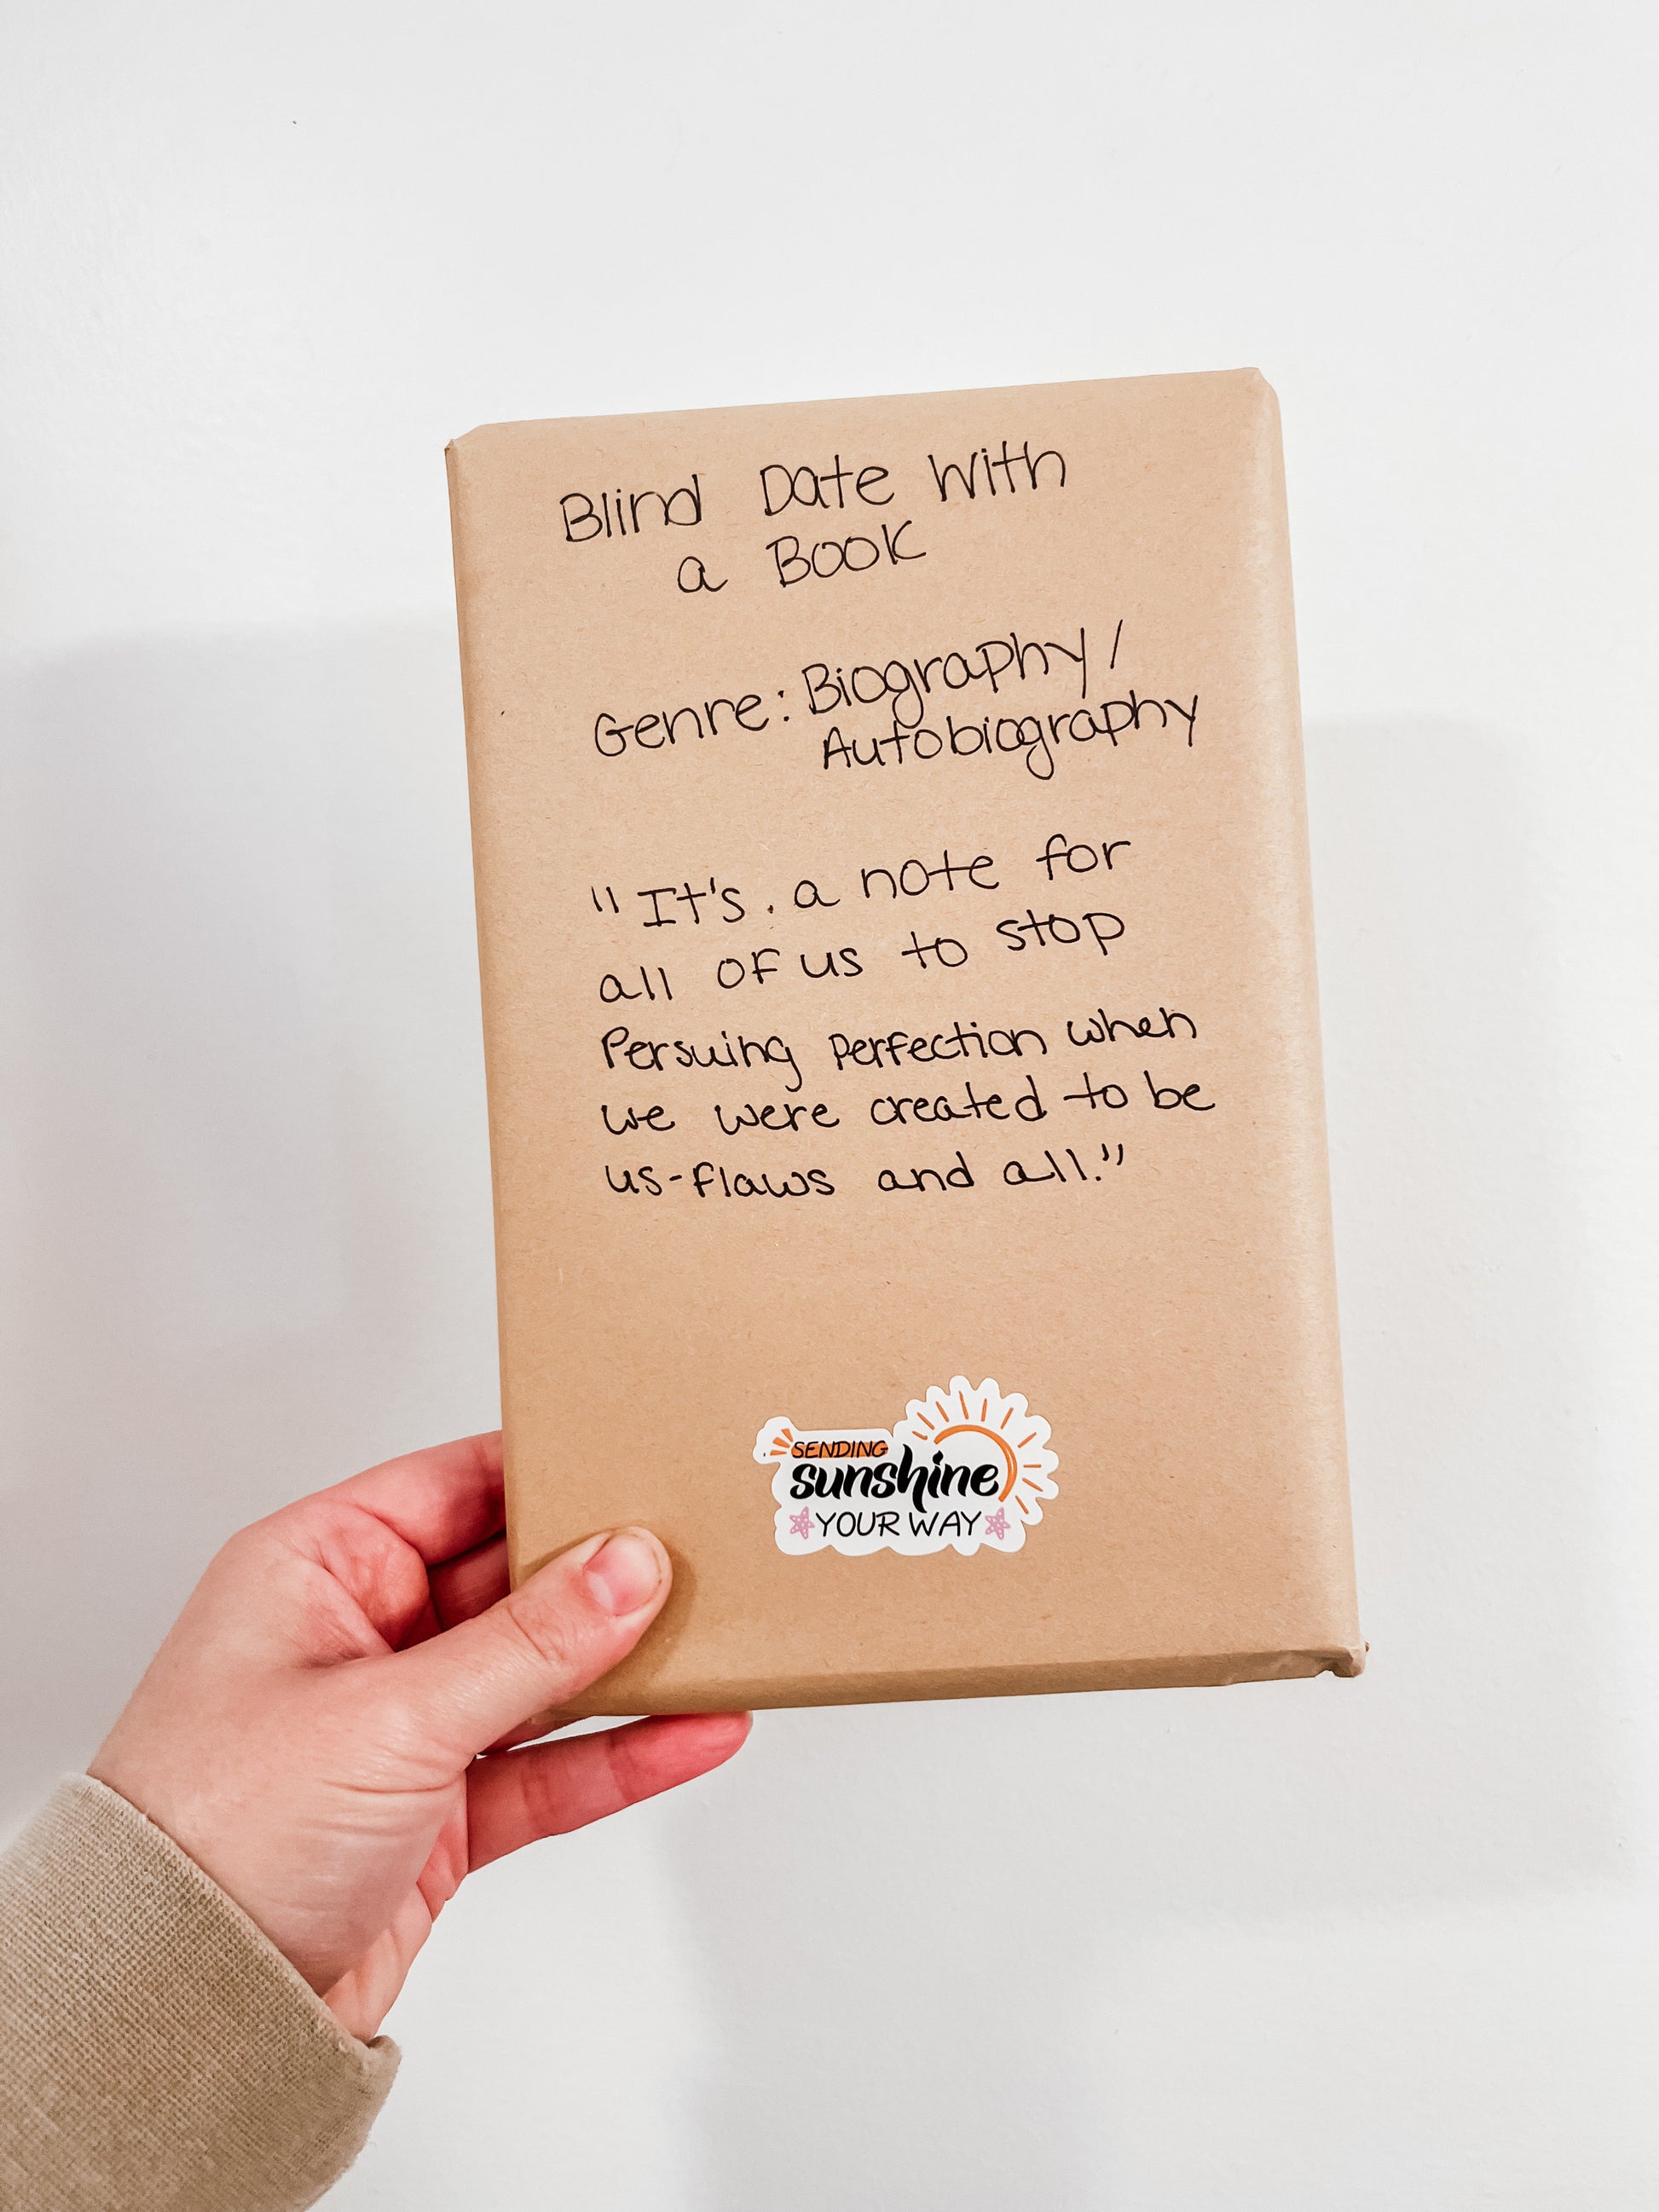 Blind Date With
a Book
Genre: Biography/
Autobiography
"It's. a note for
all of us to stop
Persuing perfection when
we were created to be
us-flaws and all."
SENDING
sunshine
YOUR WAY